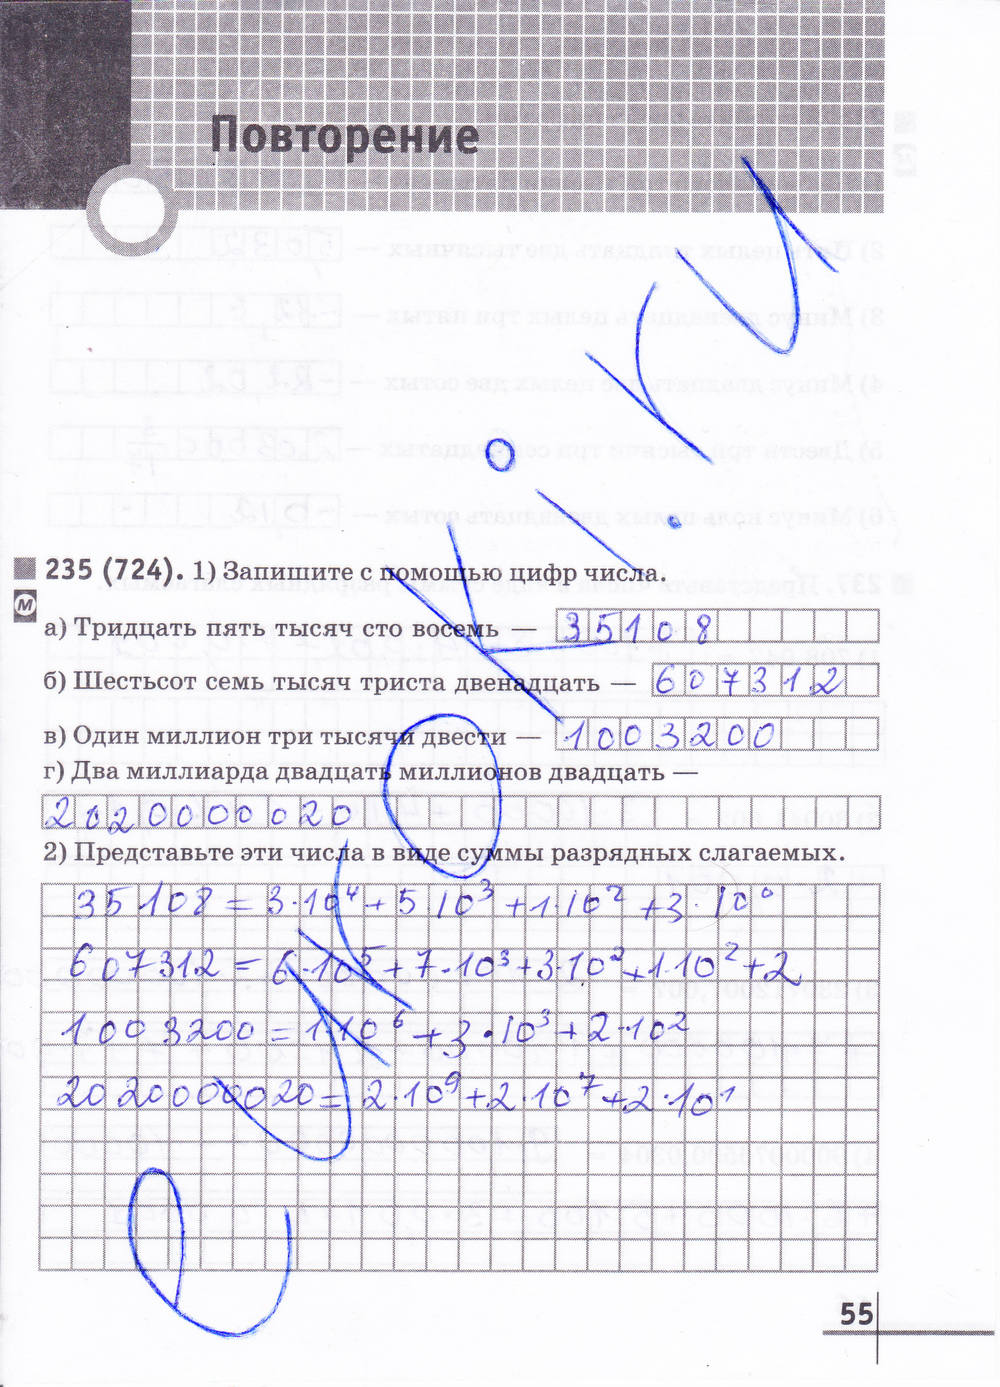 Повторение
235 (724). 1) Запишите с помощью цифр числа.
М
а) Тридцать пять тысяч сто восемь — 35108
б) Шестьсот семь тысяч триста двенадцать — 607312
в) Один миллион три тысячи двести — 1003200
г) Два миллиарда двадцать миллионов двадцать —
2020000020
2) Представьте эти числа в виде суммы разрядных слагаемых.
35108 = 3·10⁴ + 5·10³ + 1·10² + 3·10⁰
607312 = 6·10⁵ + 7·10³ + 3·10² + 1·10² + 2
1003200 = 1·10⁶ + 3·10³ + 2·10²
2020000020 = 2·10⁹ + 2·10⁷ + 2·10¹
55